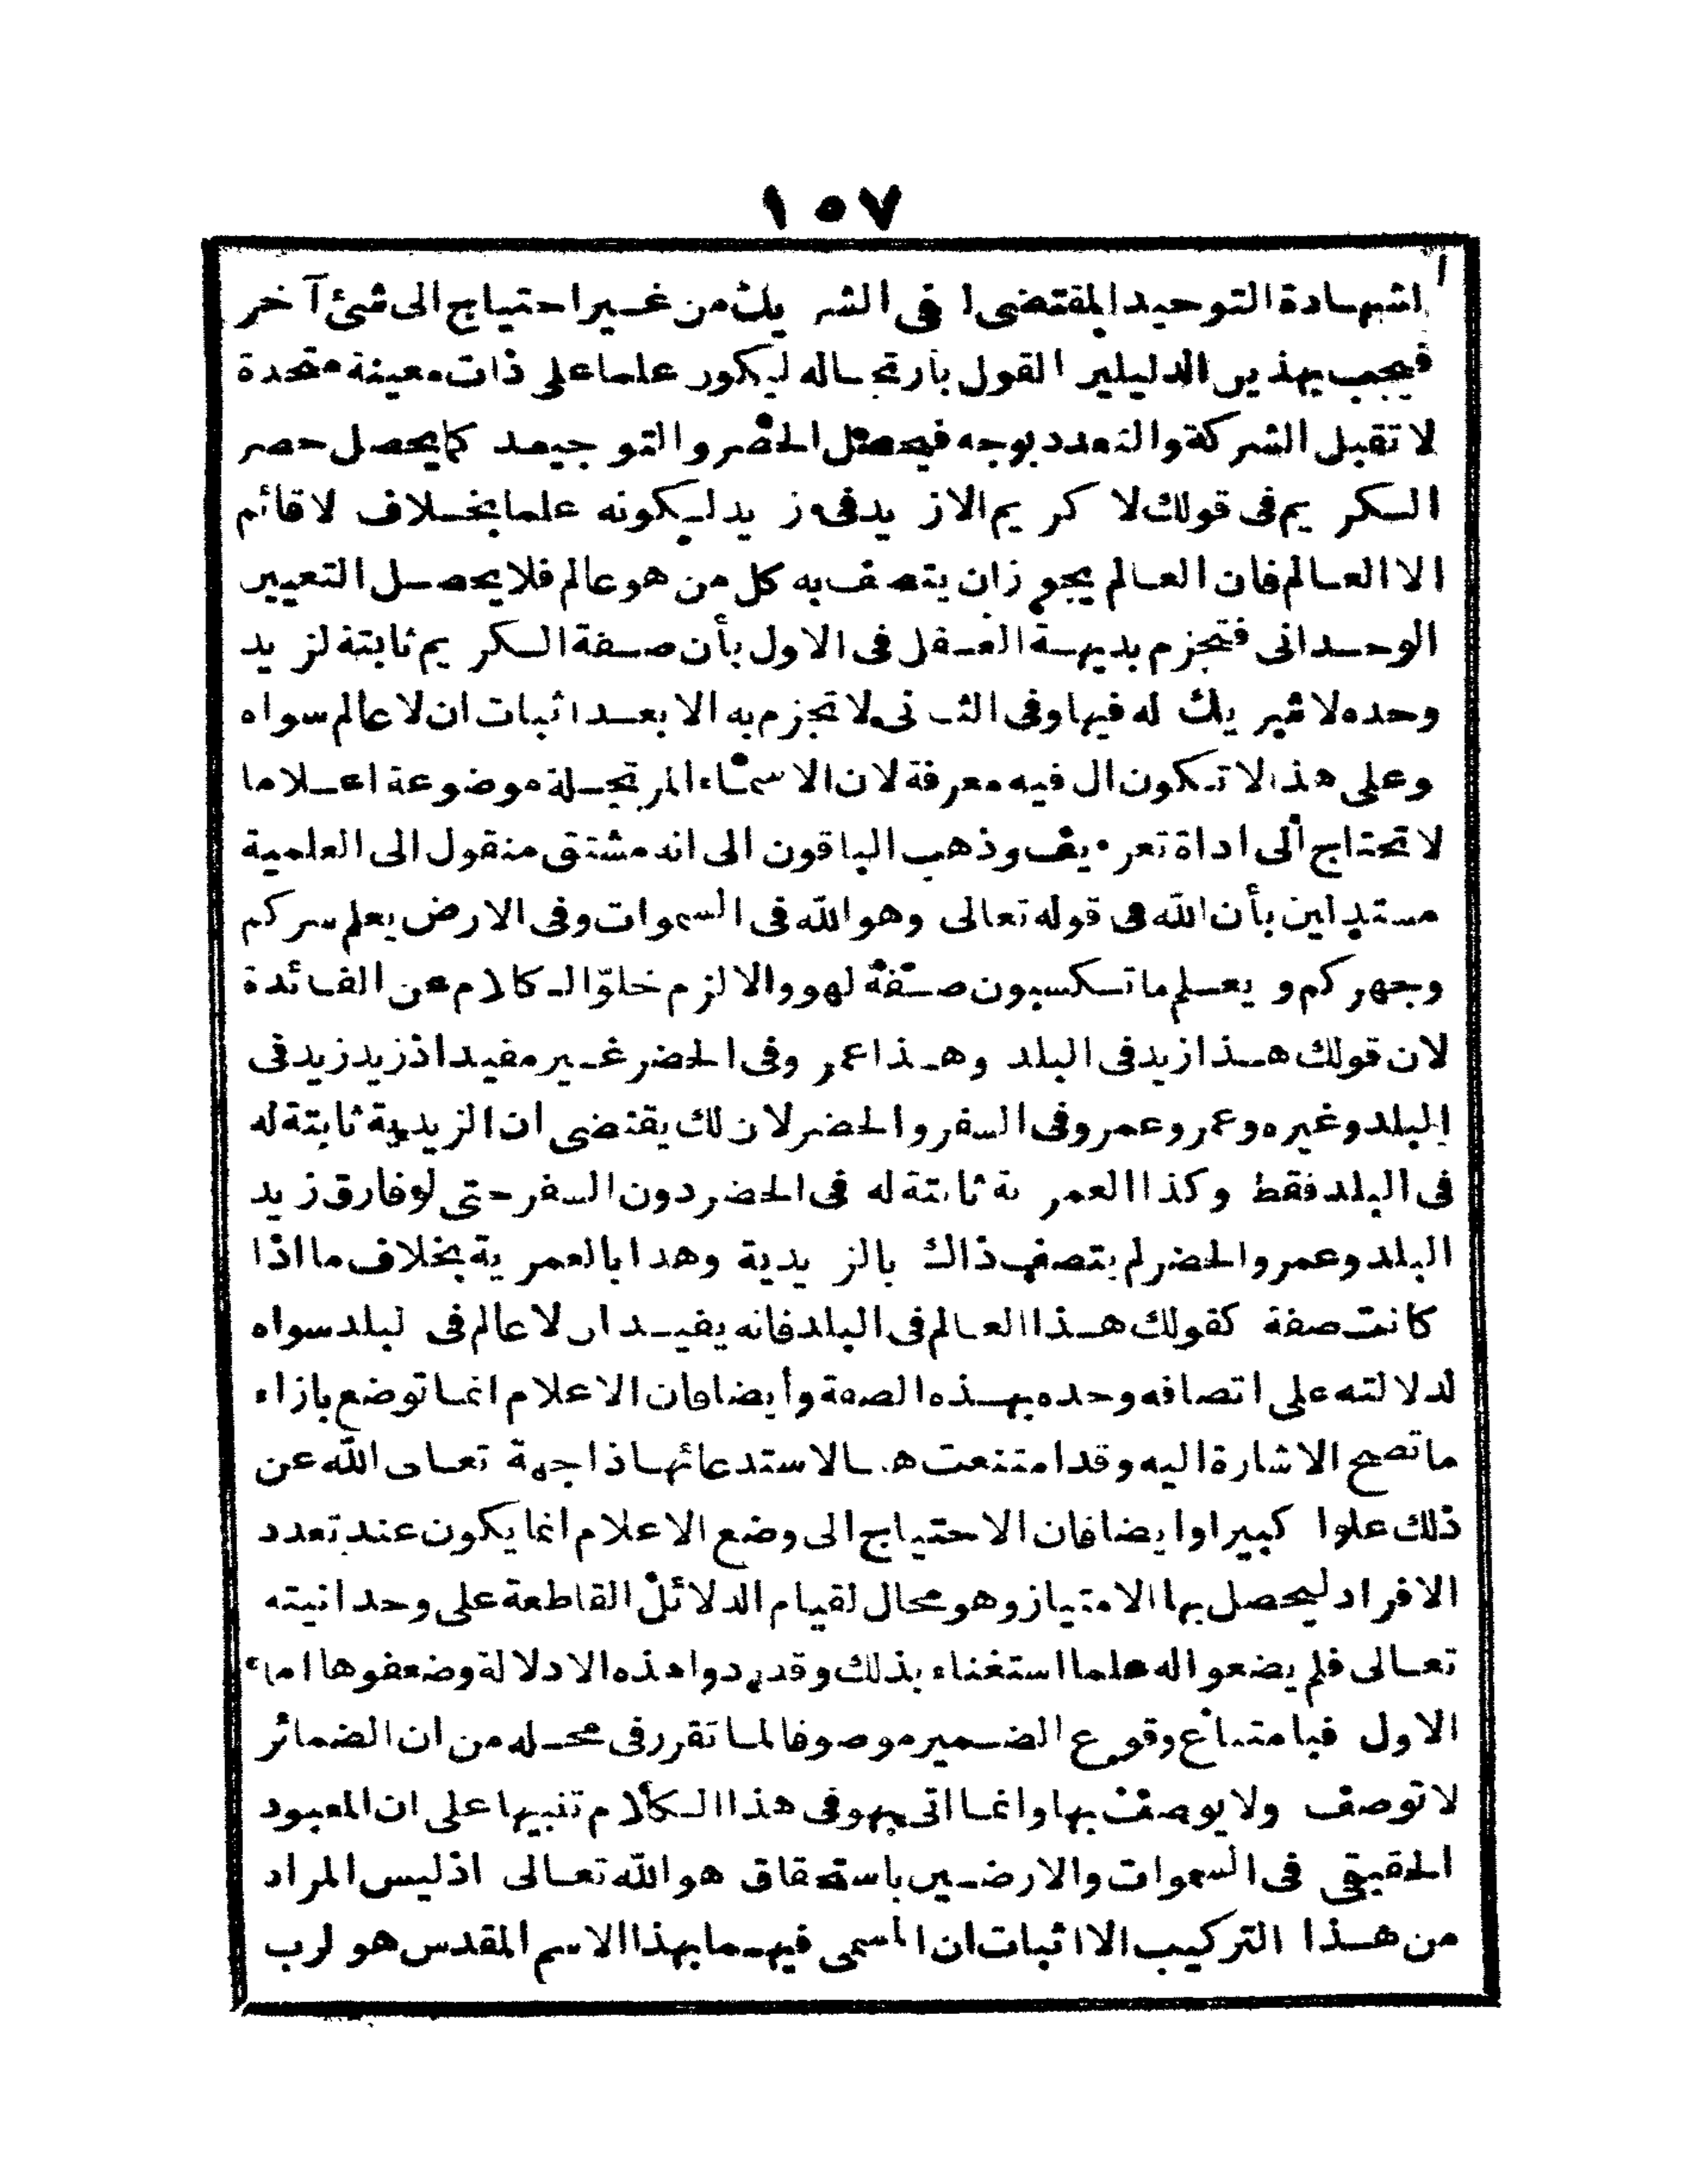 ١٥٧
لشهادة التوحيد المقتضى لنفى الشريك من غير احتياج الى شئ آخر
فيجب بهذين الدليلين القول بارتجاله ليكون علما على ذات معينة متحدة
لا تقبل الشركة والتعدد بوجه فيحصل الحصر والتوحيد كما يحصل حصر
الكريم فى قولك لا كريم الا زيد فى زيد لكونه علما بخلاف لا قائم
الا العالم فان العالم يجوز ان يتصف به كل من هو عالم فلا يحصل التعيين
الوحدانى فتجزم بديهة العقل فى الاول بأن صفة الكريم ثابتة لزيد
وحده لا شريك له فيها وفى الثانى لا تجزم به الا بعد اثبات ان لا عالم سواه
وعلى هذا لا تكون ال فيه معرفة لان الاسماء المرتجلة موضوعة اعلاما
لا تحتاج الى اداة تعريف وذهب الباقون الى انه مشتق منقول الى العلمية
مستدلين بأن الله فى قوله تعالى وهو الله فى السموات وفى الارض يعلم سركم
وجهركم ويعلم ما تكسبون صفة لهو والا لزم خلوّ الكلام عن الفائدة
لان قولك هذا زيد فى البلد وهذا عمرو فى الحضر غير مفيد اذ زيد زيد فى
البلد وغيره وعمرو وعمرو فى السفر والحضر لان لك يقتضى ان الزيدية ثابتة له
فى البلد فقط وكذا العمرية ثابتة له فى الحضر دون السفر حتى لو فارق زيد
البلد وعمرو الحضر لم يتصف ذاك بالزيدية وهذا بالعمرية بخلاف ما اذا
كانت صفة كقولك هذا العالم فى البلد فانه يفيد ان لا عالم فى البلد سواه
لدلالته على اتصافه وحده بهذه الصفة وأيضا فان الاعلام انما توضع بازاء
ما تصح الاشارة اليه وقد امتنعت هنا لاستدعائها ذا جهة تعالى الله عن
ذلك علوا كبيرا وايضا فان الاحتياج الى وضع الاعلام انما يكون عند تعدد
الافراد ليحصل بها الامتياز وهو محال لقيام الدلائل القاطعة على وحدانيته
تعالى فلم يضعوا له علما استغناء بذلك وقد ردوا هذه الادلالة وضعفوها اما
الاول فبامتناع وقوع الضمير موصوفا لما تقرر فى محله من ان الضمائر
لا توصف ولا يوصف بها وانما اتى بهو فى هذا الكلام تنبيها على ان المعبود
الحقيقى فى السموات والارضين باستحقاق هو الله تعالى اذ ليس المراد
من هذا التركيب الا اثبات ان المسمى فيهما بهذا الاسم المقدس هو لرب